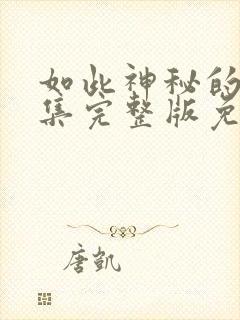 如此神秘的
集完整版免
唐凯